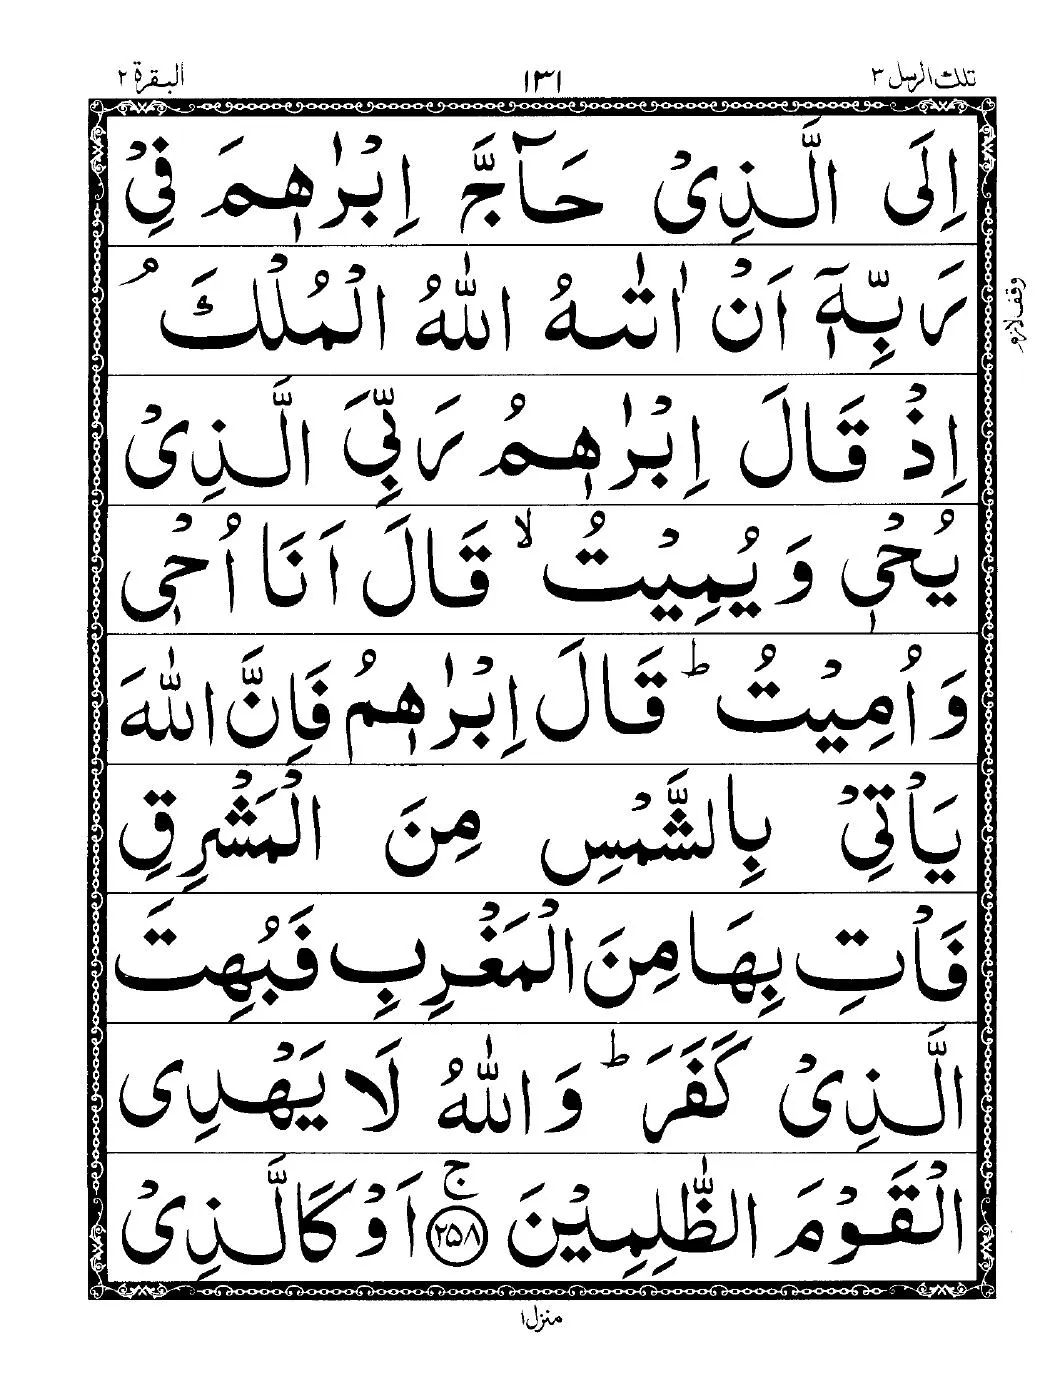 تلك الرسل ٣
١٣١
البقرة ٢
اِلَى الَّذِیْ حَآجَّ اِبْرٰهٖمَ فِیْ
رَبِّهٖۤ اَنْ اٰتٰىهُ اللّٰهُ الْمُلْكَ ۘ
وقف لازم
اِذْ قَالَ اِبْرٰهٖمُ رَبِّیَ الَّذِیْ
یُحْیٖ وَیُمِیْتُ ۙ قَالَ اَنَا اُحْیٖ
وَاُمِیْتُ ؕ قَالَ اِبْرٰهٖمُ فَاِنَّ اللّٰهَ
یَاْتِیْ بِالشَّمْسِ مِنَ الْمَشْرِقِ
فَاْتِ بِهَا مِنَ الْمَغْرِبِ فَبُهِتَ
الَّذِیْ كَفَرَ ؕ وَاللّٰهُ لَا یَهْدِی
الْقَوْمَ الظّٰلِمِیْنَ ۚ ﴿٢٥٨﴾ اَوْ كَالَّذِیْ
منزل ١